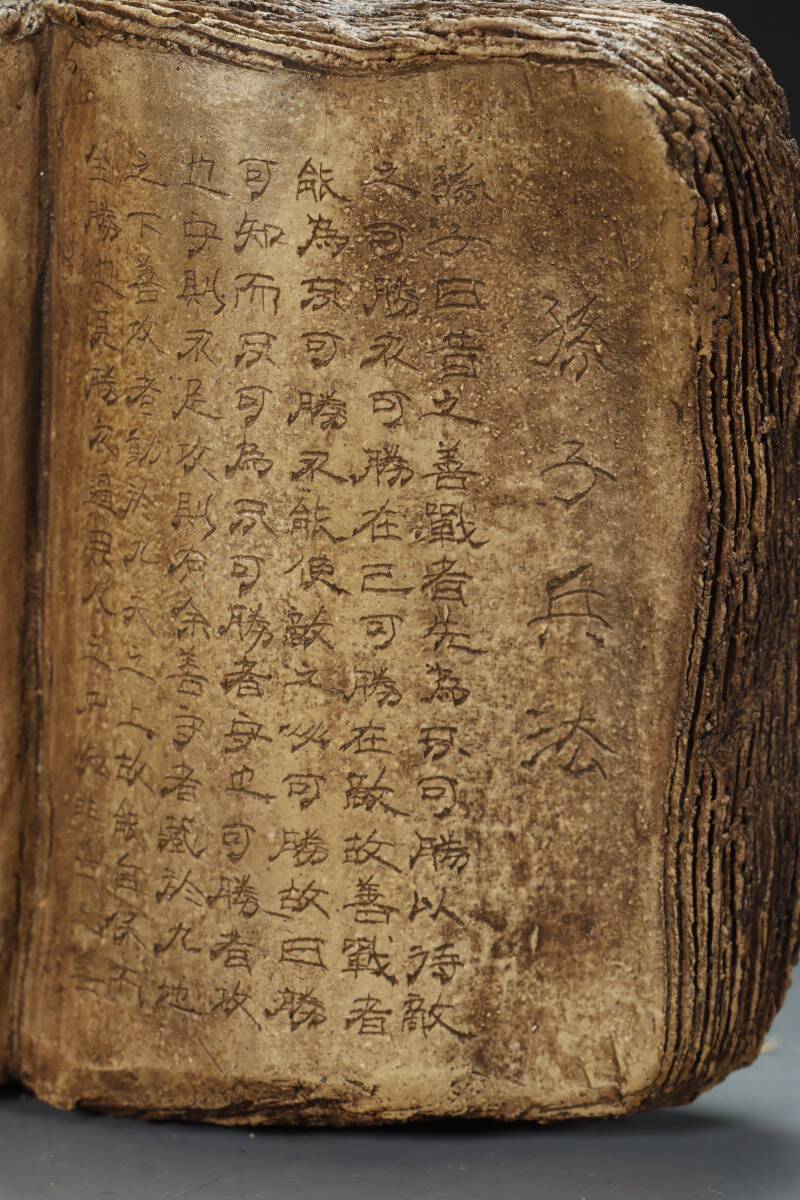 孫子兵法
孫子曰昔之善戰者先為不可勝以待敵
之可勝不可勝在己可勝在敵故善戰者
能為不可勝不能使敵之必可勝故曰勝
可知而不可為不可勝者守也可勝者攻
也守則不足攻則有余善守者藏於九地
之下善攻者動於九天之上故能自保而
全勝也見勝不過眾人之所知非善之善